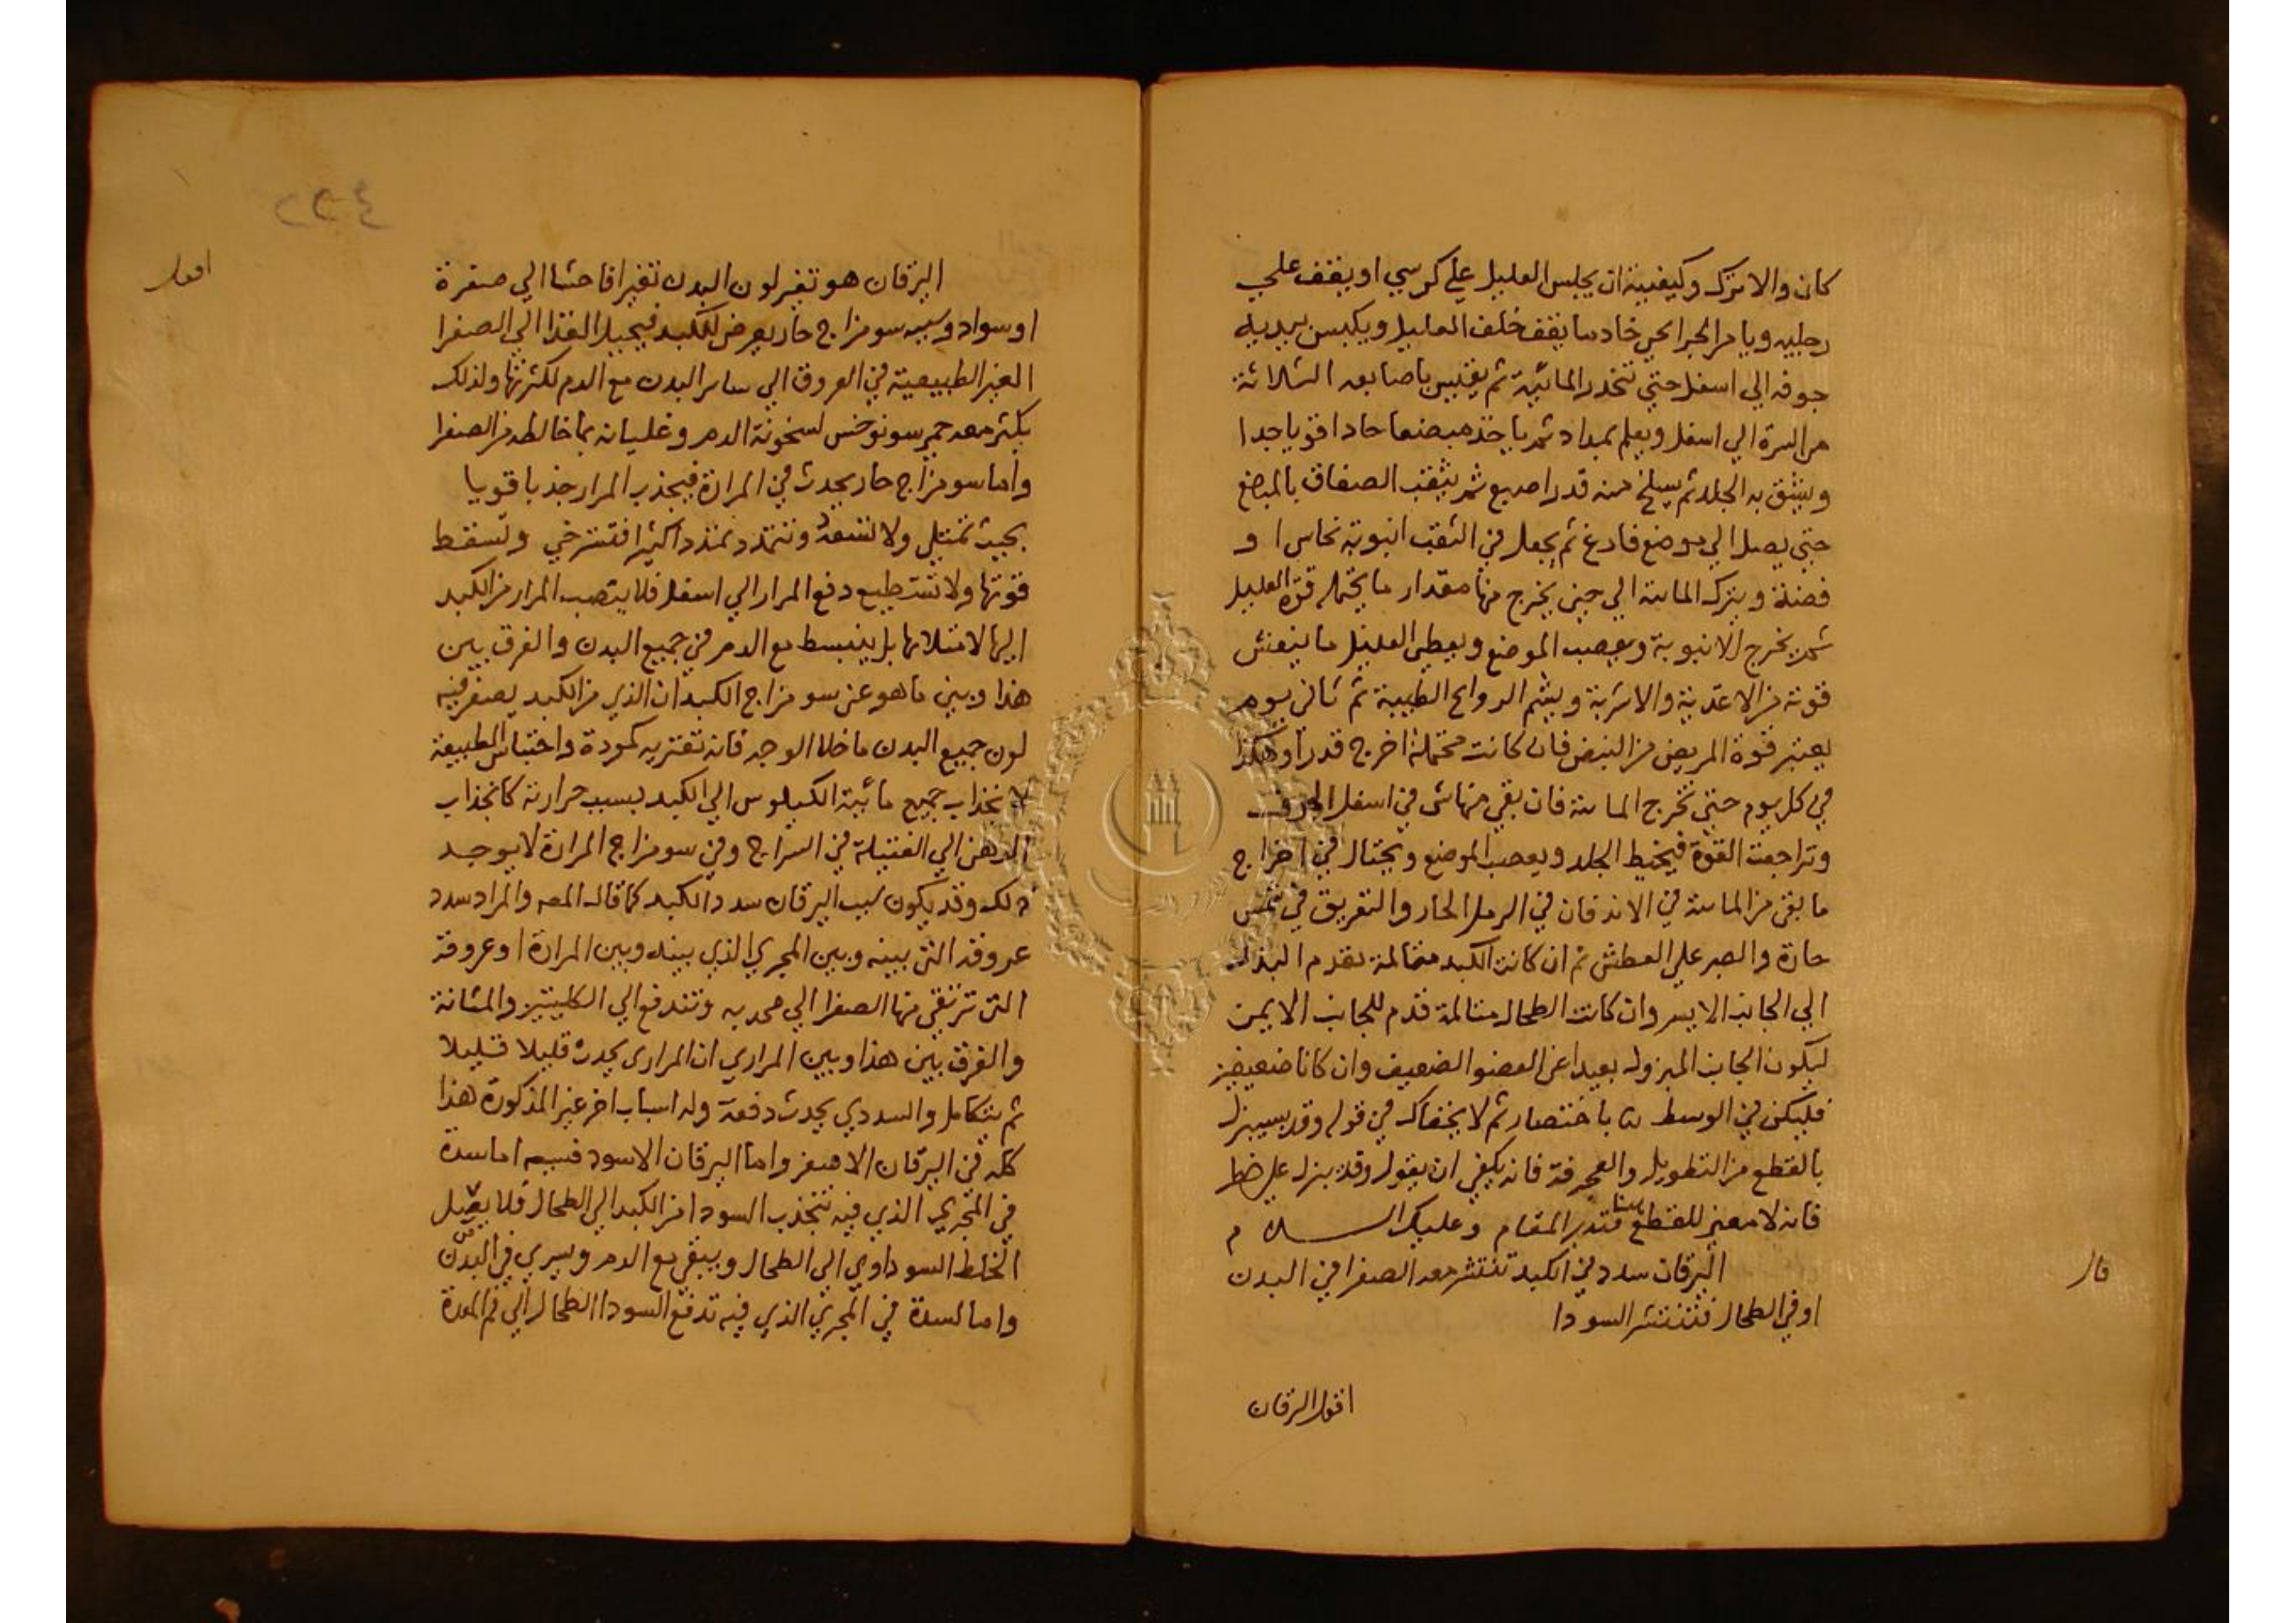 كان والا ترك وكيفيته ان يجلس العليل علي كرسي او يقف علي
رجليه ويامر الجرايحي خادما يقف خلف العليل ويكبس بيديه
جوفه الي اسفل حتي تنحدر المائية ثم يقيس باصابعه الثلاثة
من السرة الي اسفل ويعلم بمداد ثم ياخذ مبضعا حادا قويا جدا
ويشق به الجلد ثم يسلخ منه قدر اصبع ثم يثقب الصفاق بالمبضع
حتي يصل الي موضع فارغ ثم يجعل في الثقب انبوبة نحاس او
فضة ويترك المائية الي حين يخرج منها مقدار ما يحتمله قوة العليل
ثم يخرج الانبوبة ويعصب الموضع ويعطي العليل ما ينعش
قوته من الاغذية والاشربة ويشم الروايح الطيبة ثم ثاني يوم
يعتبر قوة المريض من النبض فان كانت محتملة اخرج قدرا وهكذا
في كل يوم حتي تخرج المائية فان بقي منها شي في اسفل الجوف
وتراجعت القوة فيخيط الجلد ويعصب الموضع ويحتال في اخراج
ما بقي من المائية في الاندفان في الرمل الحار والتعريق في شمس
حارة والصبر علي العطش ثم ان كانت الكبد متالمة تقدم البذل
الي الجانب الايسر وان كانت الطحال متالمة قدم للجانب الايمن
ليكون الجانب المبزول بعيدا عن العضو الضعيف وان كانا ضعيفين
فليكن في الوسط باختصار ثم لا يخفاك في قوله وقد يبزل
بالقطع من التطويل والعجرفة فانه يكفي ان يقول وقد بزل علي خطر
فانه لا معني للقطع هنا فتدبر المقام وعليك السلام
قال
اليرقان سدد في الكبد تنتشر معه الصفرا في البدن
او في الطحال فتنتشر السودا
اقول اليرقان
٤٢٢
اقول
اليرقان هو تغير لون البدن تغيرا فاحشا الي صفرة
او سواد وسببه سو مزاج حار يعرض للكبد فيحيل الغذا الي الصفرا
الغير الطبيعية في العروق الي ساير البدن مع الدم لكثرتها ولذلك
يكثر معه حمي سونوخس لسخونة الدم وغليانه بما خالطه من الصفرا
واما سو مزاج حار يحدث في المرارة فيجذب المرار جذبا قويا
بحيث تمتلي ولا تسعه وتتمدد تمددا كثيرا فتسترخي وتسقط
قوتها ولا تستطيع دفع المرار الي اسفل فلا ينصب المرار من الكبد
اليها لامتلائها بل ينبسط مع الدم في جميع البدن والفرق بين
هذا وبين ما هو عن سو مزاج الكبد ان الذي من الكبد يصفر فيه
لون جميع البدن ما خلا الوجه فانه تعتريه كمودة واحتباس الطبيعة
لانجذاب جميع مائية الكيلوس الي الكبد بسبب حرارته كانجذاب
الدهن الي الفتيلة في السراج وفي سو مزاج المرارة لا يوجد
ذلك وقد يكون سبب اليرقان سدد الكبد كما قال المص والمراد سدد
عروقه التي بينه وبين المجري الذي بينه وبين المرارة او عروقه
التي ترتقي منها الصفرا الي محدبه وتندفع الي الكليتين والمثانة
والفرق بين هذا وبين المراري ان المراري يحدث قليلا قليلا
ثم يتكامل والسددي يحدث دفعة وله اسباب اخر غير المذكورة هذا
كله في اليرقان الاصفر واما اليرقان الاسود فسببه اما سدة
في المجري الذي فيه تنجذب السودا من الكبد الي الطحال فلا يصل
الخلط السوداوي الي الطحال ويبقي مع الدم ويسري في البدن
واما لسدة في المجري الذي فيه تدفع السودا الطحال الي فم المعدة